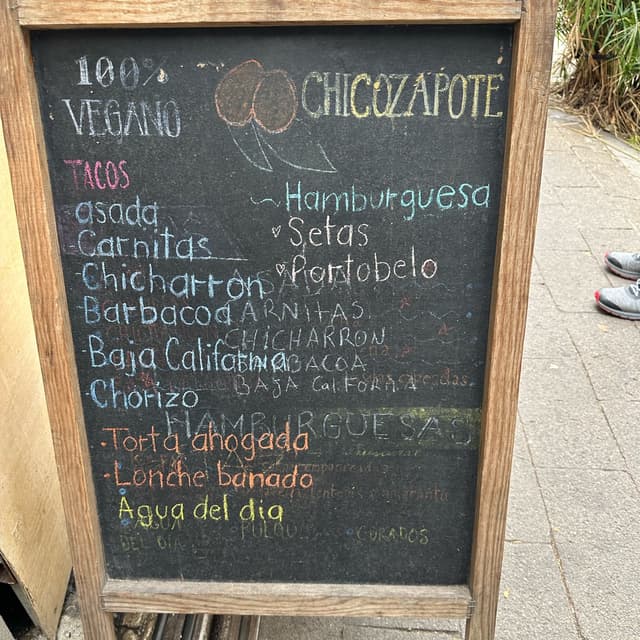 100%
VEGANO
CHICOZAPOTE
TACOS
asada
Carnitas
Chicharron
Barbacoa
Baja California
Chorizo
Hamburguesa
Setas
Portobelo
ARNITAS
CHICHARRON
BACOA
BAJA CALIFORNIA
HAMBURGUESAS
· Torta ahogada
· Lonche banado
Agua del dia
AGUA
DEL DIA
PULQU
CURADOS